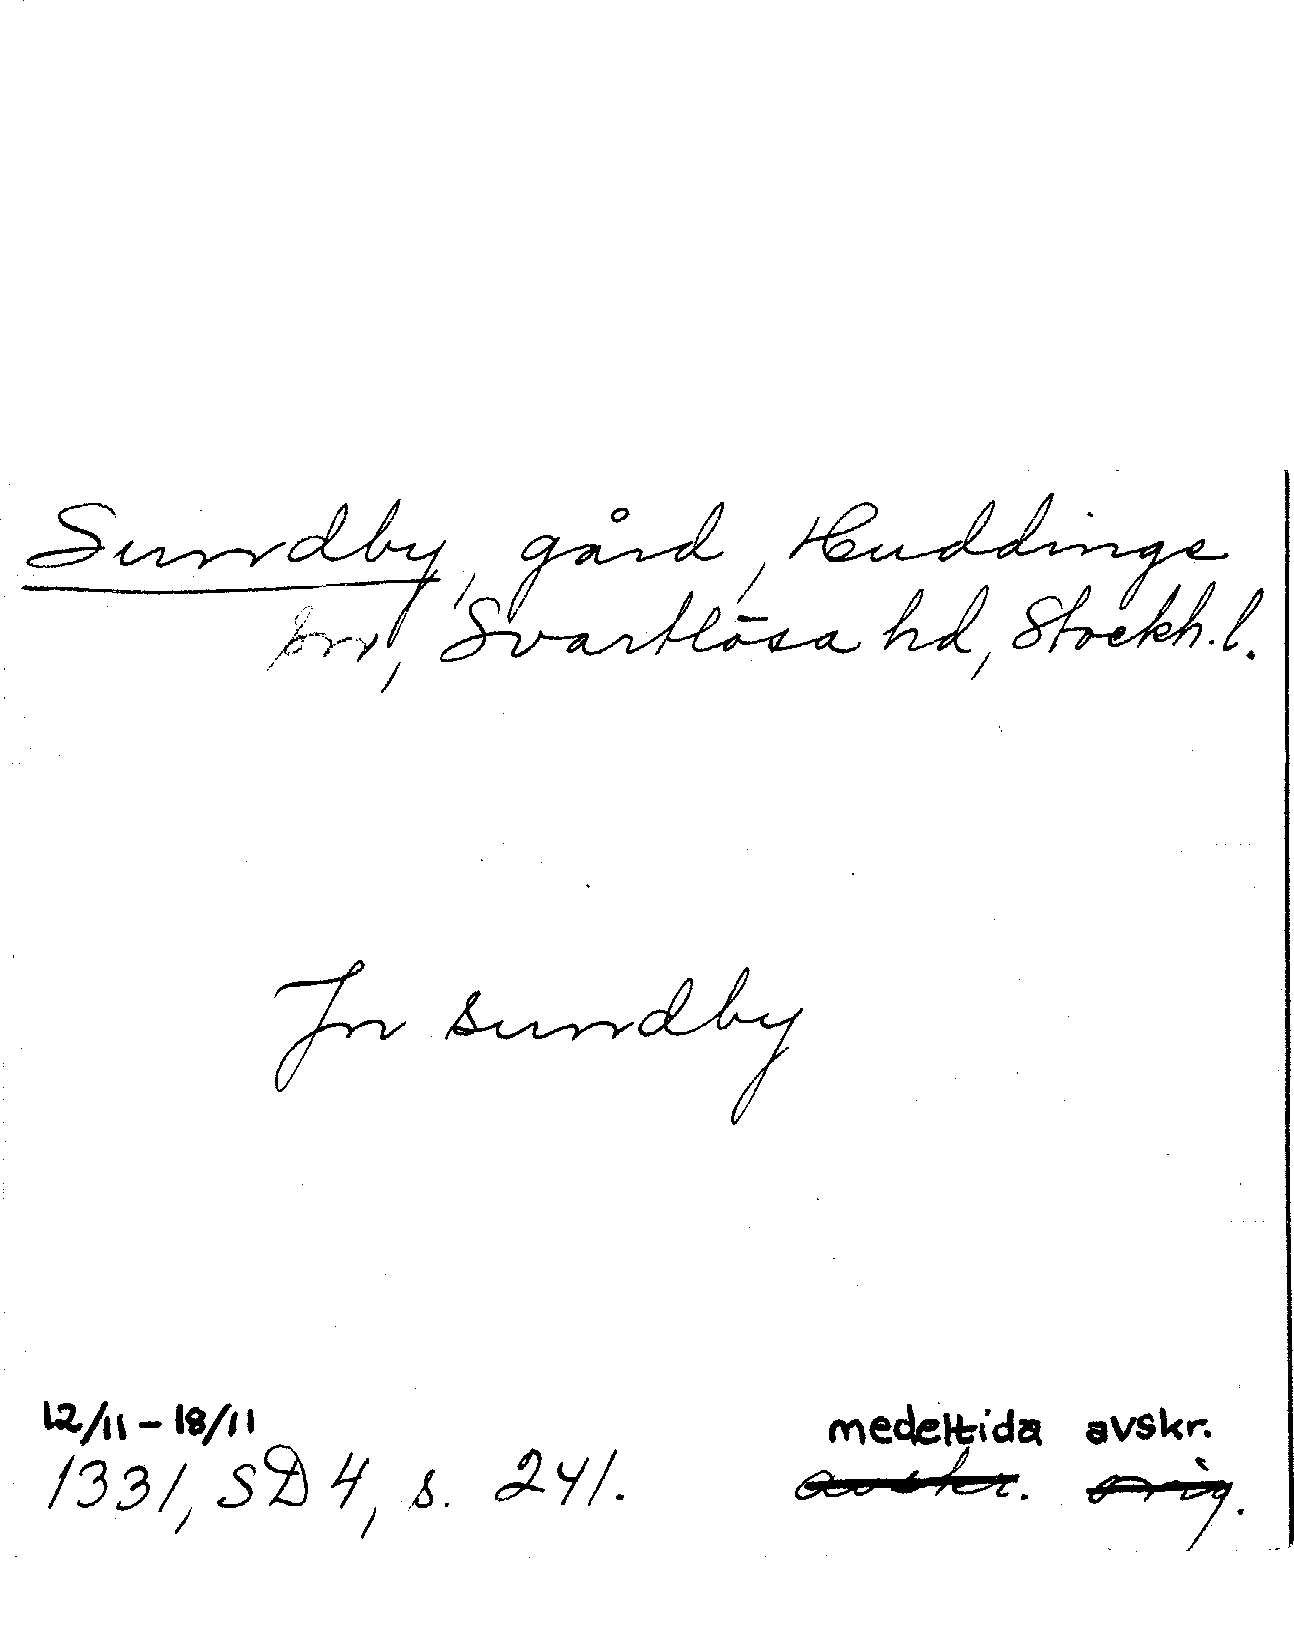 Sundby, gård, Huddinge
sn, Svartlösa hd, Stockh. l.
Jn sundby
12/11 – 18/11
medeltida avskr.
1331, SD 4, s. 241.
avskr. orig.